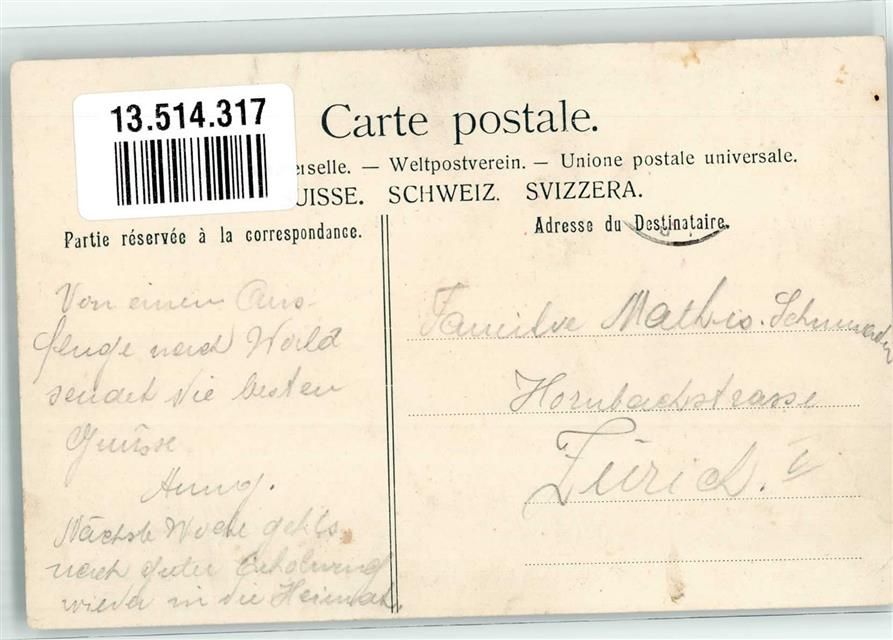 13.514.317
Carte postale.
erselle. — Weltpostverein. — Unione postale universale.
UISSE. SCHWEIZ. SVIZZERA.
Partie réservée à la correspondance.
Adresse du Destinataire.
Von einem Aus-
fluge nach Wald
sendet die besten
Grüsse
Nächste Woche gehts
nach guter Erholung
wieder in die Heimat.
Familie Mathis-
Hornbachstrasse
Zürich. V